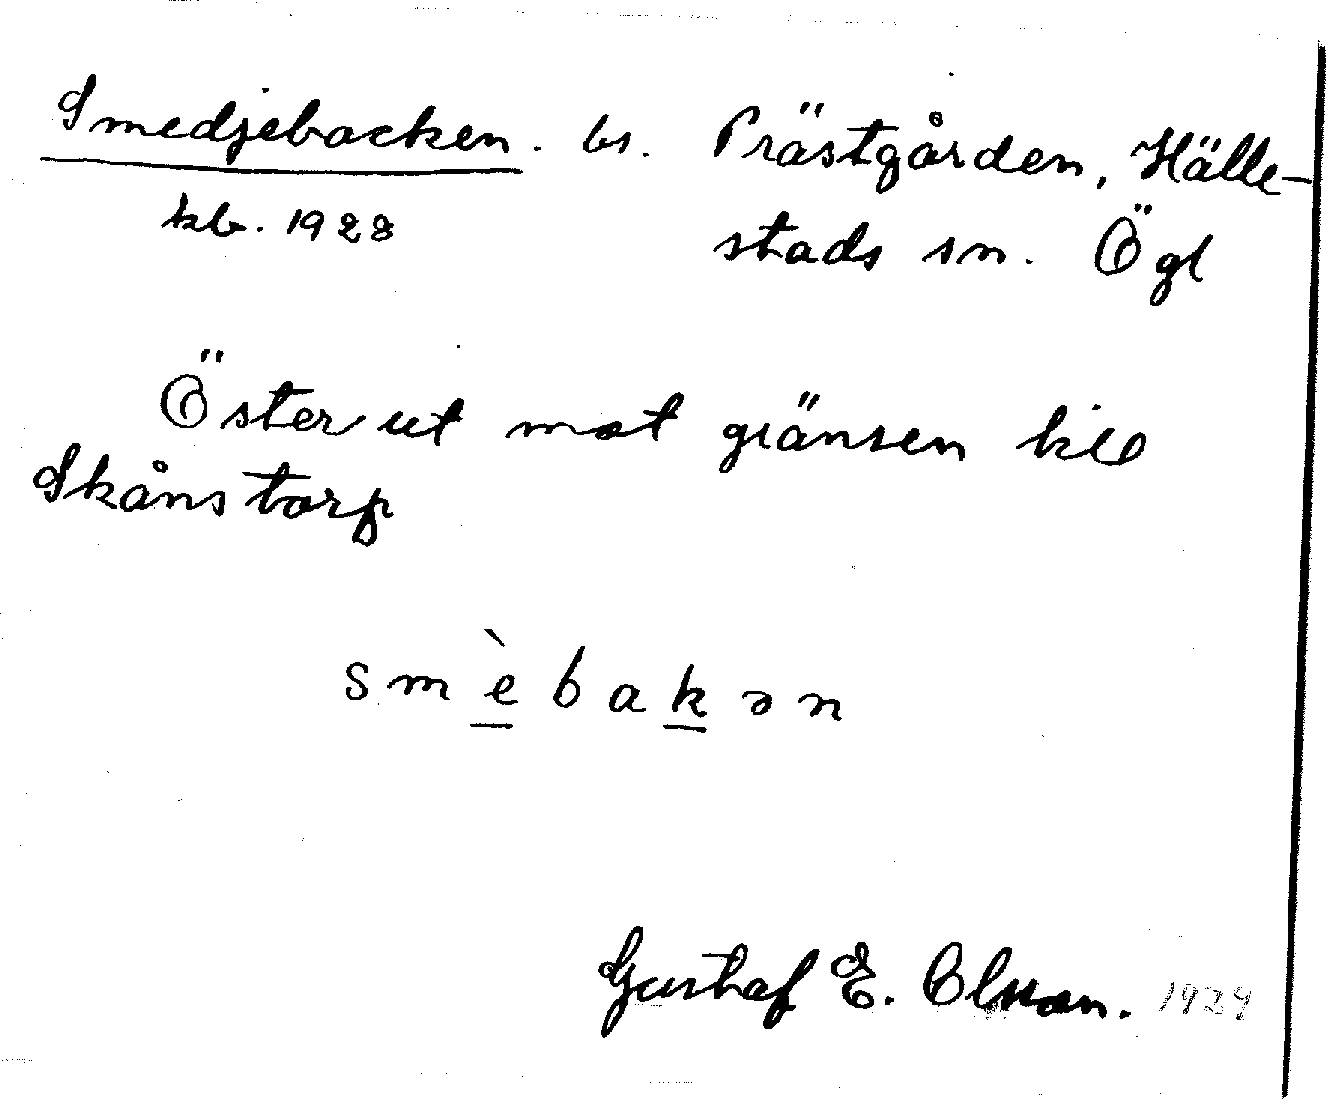 Smedjebacken. bs. Prästgården, Hälle-
kb. 1928
stads sn. Ögl
Österut mot gränsen till
Skånstorp
smèbakən
Gustaf E. Olsson. 1929